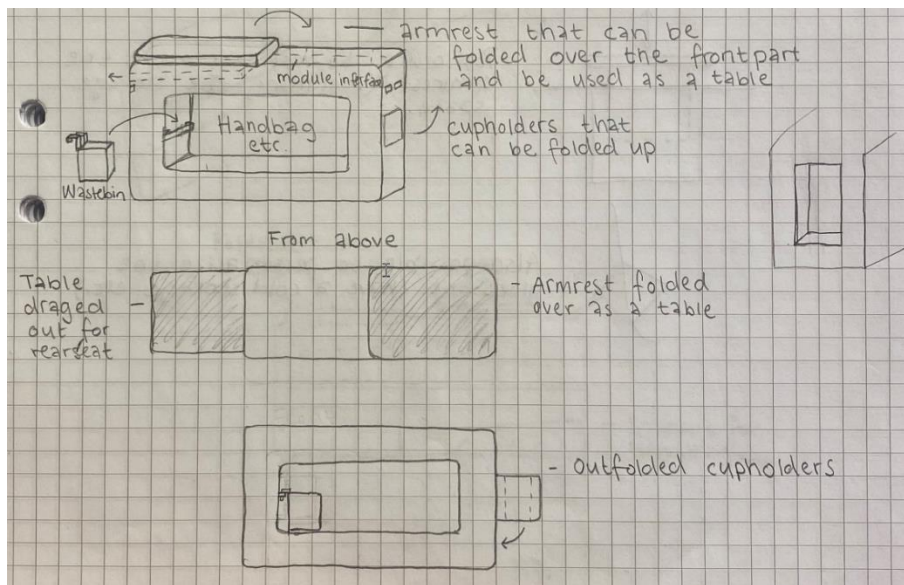 armrest that can be
folded over the frontpart
and be used as a table
module interface
Handbag
etc.
cupholders that
can be folded up
Wastebin
From above
Table
draged
out for
rearseat
Armrest folded
over as a table
- Outfolded cupholders